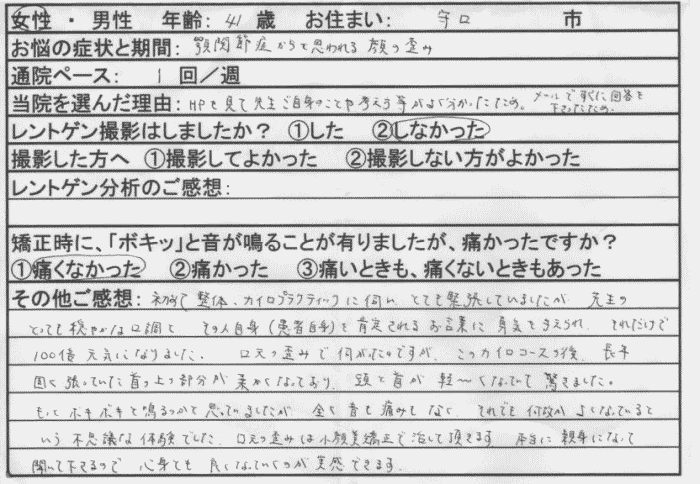 女性 ・ 男性 年齢: 41 歳 お住まい: 守口 市
お悩の症状と期間: 顎関節症からと思われる 顔の歪み
通院ペース: 1 回／週
当院を選んだ理由: HPを見て先生ご自身のことや考え方等がよく分かったため。 メールで すぐに回答を下さったため。
レントゲン撮影はしましたか？ ①した ②しなかった
撮影した方へ ①撮影してよかった ②撮影しない方がよかった
レントゲン分析のご感想:
矯正時に、「ボキッ」と音が鳴ることが有りましたが、痛かったですか？
①痛くなかった ②痛かった ③痛いときも、痛くないときもあった
その他ご感想: 初めて 整体、カイロプラクティックに伺い とても緊張していましたが 先生の
とっても穏やかな口調と その人自身（患者自身）を肯定される お言葉に 勇気を与えられ それだけで
100倍 元気になりました。 口元の歪みで 伺がったのですが、 このカイロコースの後、 長年
固く張っていた首の上の部分が 柔かくなっており、 頭と首が 軽〜くなっていて 驚きました。
もっと ボキボキと鳴るのかと思っていましたが 全く音も痛みもなく それでも何故か よくなっていると
いう 不思議な体験でした。 口元の歪みは小顔美矯正で治して頂きます。 本当に 親身になって
聞いて下さるので 心身ともに 良くなっていくのが 実感できます。